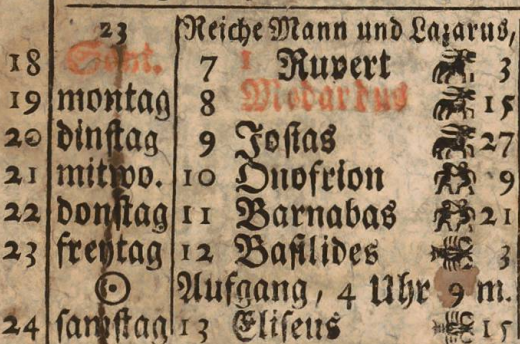 23 Reiche Mann und Lazarus,
18 Sont. 7 1 Rupert 3
19 montag 8 Medardus 15
20 dinſtag 9 Joſias 27
21 mitwo. 10 Onofrion 9
22 donſtag 11 Barnabas 21
23 freytag 12 Baſilides 3
☉ Aufgang, 4 Uhr 9 m.
24 ſamſtag 13 Eliſeus 15